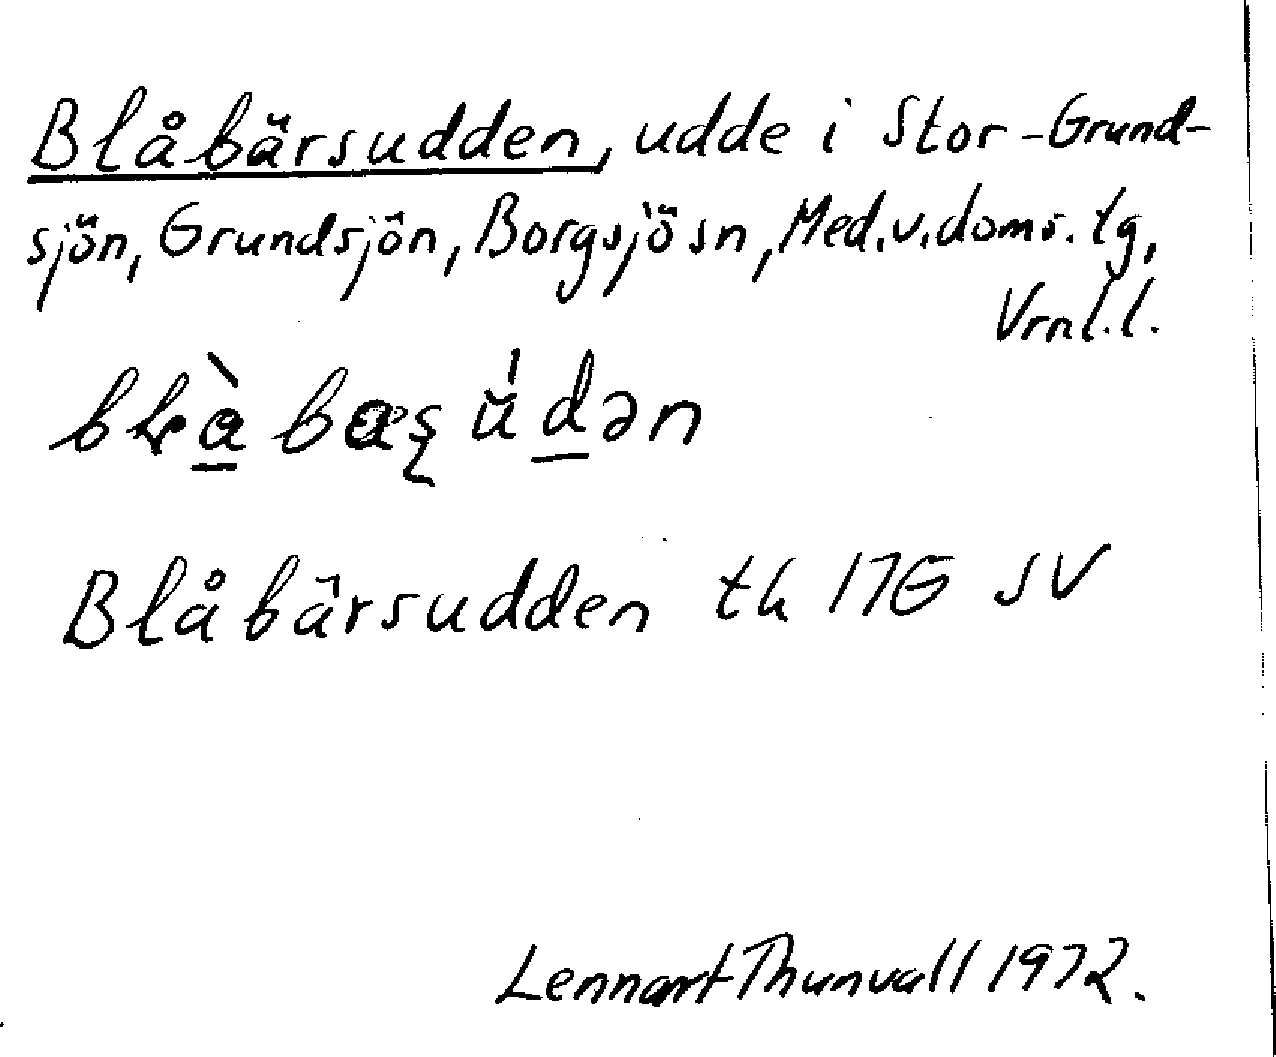 Blåbärsudden, udde i Stor-Grund-
sjön, Grundsjön, Borgsjö sn, Med.v.doms.tg,
Vrnl.l.
Blåbärsudden tk 17G SV
Lennart Thunvall 1972.